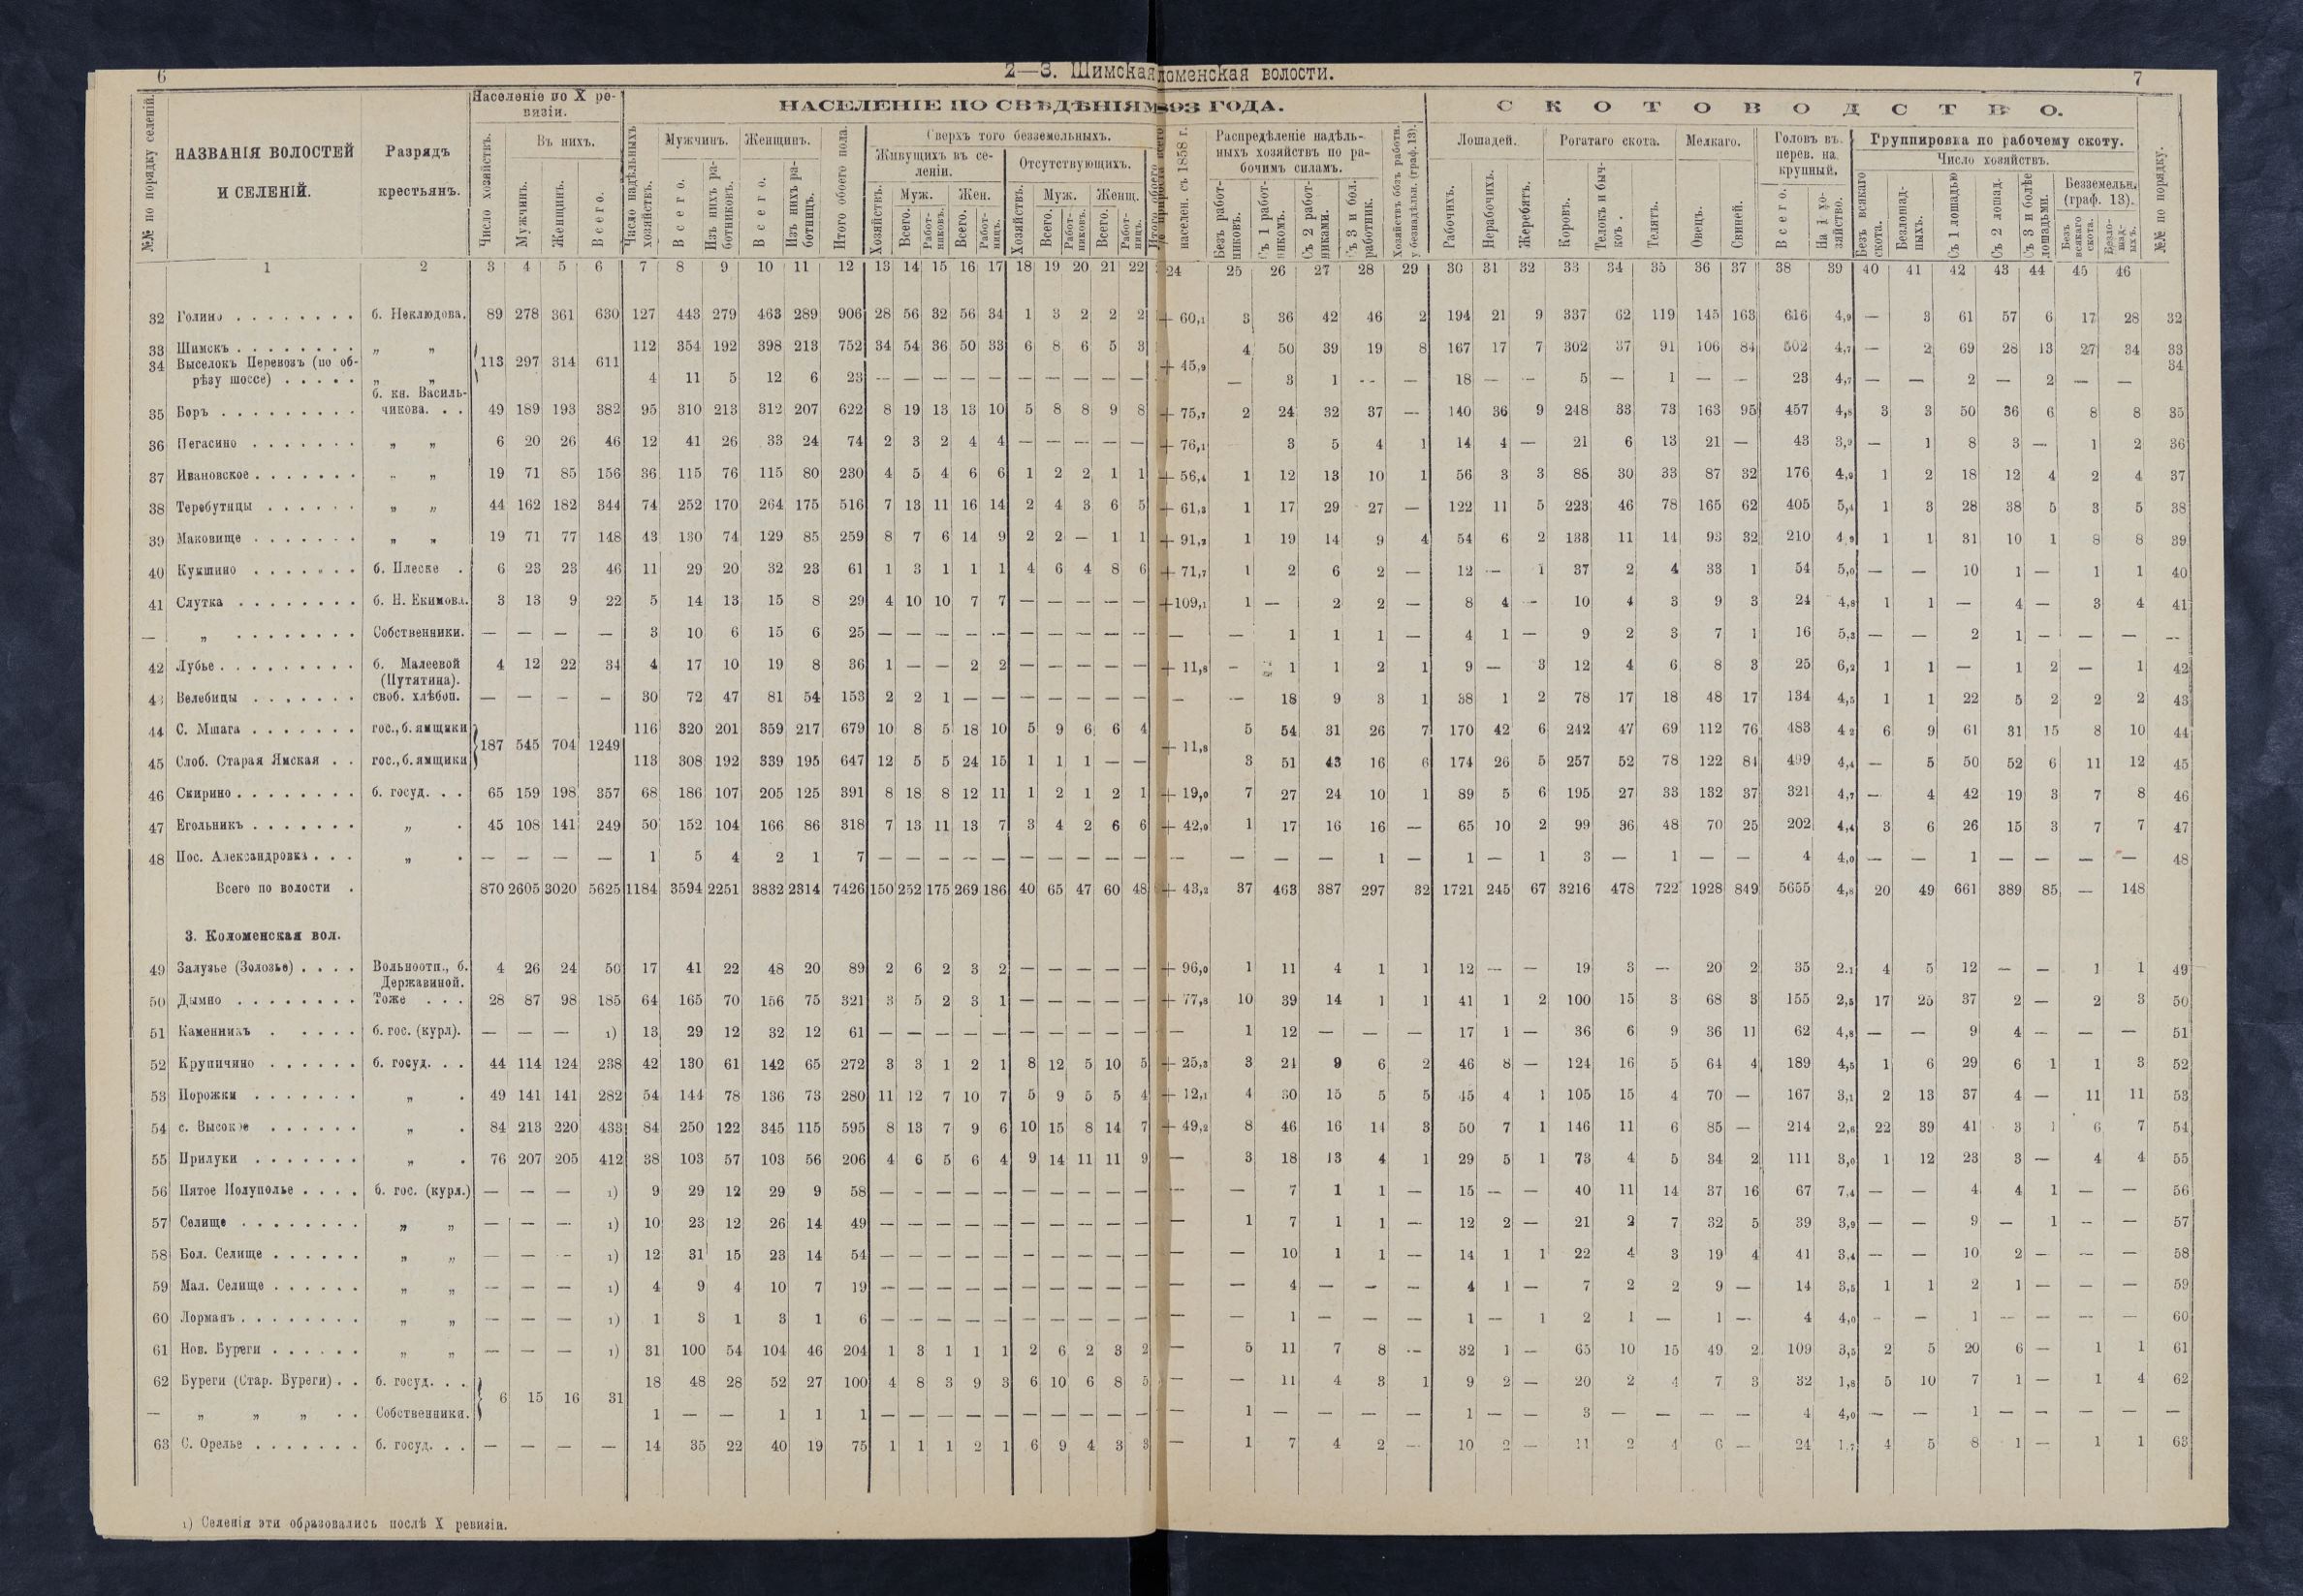 6
2—3. Шимская
ломенская волости.
7
№№ по порядку селеній.
НАЗВАНІЯ ВОЛОСТЕЙ И СЕЛЕНІЙ.
Разрядъ крестьянъ.
Населеніе по X ревизіи.
Число хозяйствъ.
Въ нихъ.
Мужчинъ.
Женщинъ.
Всего.
НАСЕЛЕНІЕ ПО СВѢДѢНІЯМЪ
893 ГОДА.
Число надѣльныхъ хозяйствъ.
Мужчинъ.
Всего.
Изъ нихъ работниковъ.
Женщинъ.
Всего.
Изъ нихъ работницъ.
Итого обоего пола.
Сверхъ того безземельныхъ.
Живущихъ въ селеніи.
Хозяйствъ.
Муж.
Всего.
Работниковъ.
Жен.
Всего.
Работницъ.
Отсутствующихъ.
Хозяйствъ.
Муж.
Всего.
Работниковъ.
Женщ.
Всего.
Работницъ.
населен. съ 1858 г.
Распредѣленіе надѣльныхъ хозяйствъ по рабочимъ силамъ.
Безъ работниковъ.
Съ 1 работникомъ.
Съ 2 работниками.
Съ 3 и бол. работник.
СКОТОВОДСТВО.
Лошадей.
Рабочихъ.
Нерабочихъ.
Жеребятъ.
Рогатаго скота.
Коровъ.
Телокъ и бычковъ.
Телятъ.
Мелкаго.
Овецъ.
Свиней.
Головъ въ перев. на крупный.
Всего.
На 1 хозяйство.
Группировка по рабочему скоту.
Число хозяйствъ.
Безъ всякаго скота.
Безлошадныхъ.
Съ 1 лошадью
Съ 2 лошад.
Съ 3 и болѣе лошадьми.
Безземельн. (граф. 13).
Безъ всякаго скота.
Безлошадныхъ.
№№ по порядку.
1 2 3 4 5 6 7 8 9 10 11 12 13 14 15 16 17 18 19 20 21 22 24 25 26 27 28 29 30 31 32 33 34 35 36 37 38 39 40 41 42 43 44 45 46
32 Голино . . . . . . . . б. Неклюдова. 89 278 361 630 127 443 279 463 289 906 28 56 32 56 34 1 3 2 2 2 + 60,1 3 36 42 46 2 194 21 9 337 62 119 145 163 616 4,9 — 3 61 57 6 17 28 32
33 Шимскъ . . . . . . . . „ „ 113 297 314 611 112 354 192 398 213 752 34 54 36 50 33 6 8 6 5 3 + 45,9 4 50 39 19 8 167 17 7 302 37 91 106 84 502 4,7 — 2 69 28 13 27 34 33
34 Выселокъ Перевозъ (по обрѣзу шоссе) . . . . . „ „ 4 11 5 12 6 23 — — — — — — — — — — — 3 1 — — 18 — — 5 — 1 — — 23 4,7 — — 2 — 2 — — 34
35 Боръ . . . . . . . . . б. кн. Васильчикова. . . 49 189 193 382 95 310 213 312 207 622 8 19 13 13 10 5 8 8 9 8 + 75,7 2 24 32 37 — 140 36 9 248 33 73 163 95 457 4,8 3 3 50 36 6 8 8 35
36 Пегасино . . . . . . . „ „ 6 20 26 46 12 41 26 33 24 74 2 3 2 4 4 — — — — — + 76,1 3 5 4 1 14 4 — 21 6 13 21 — 43 3,9 — 1 8 3 — 1 2 36
37 Ивановское . . . . . . . „ „ 19 71 85 156 36 115 76 115 80 230 4 5 4 6 6 1 2 2 1 1 + 56,4 1 12 13 10 1 56 3 3 88 30 33 87 32 176 4,9 1 2 18 12 4 2 4 37
38 Теребутицы . . . . . . „ „ 44 162 182 344 74 252 170 264 175 516 7 13 11 16 14 2 4 3 6 5 + 61,3 1 17 29 27 — 122 11 5 223 46 78 165 62 405 5,4 1 3 28 38 5 3 5 38
39 Маковище . . . . . . . „ „ 19 71 77 148 43 130 74 129 85 259 8 7 6 14 9 2 2 — 1 1 + 91,2 1 19 14 9 4 54 6 2 133 11 14 93 32 210 4,9 1 1 31 10 1 8 8 39
40 Кукшино . . . . . . . б. Плеске . 6 23 23 46 11 29 20 32 23 61 1 3 1 1 1 4 6 4 8 6 + 71,7 1 2 6 2 — 12 — 1 37 2 4 33 1 54 5,0 — — 10 1 — 1 1 40
41 Слутка . . . . . . . . б. Н. Екимова. 3 13 9 22 5 14 13 15 8 29 4 10 10 7 7 — — — — — +109,1 1 — 2 2 — 8 4 — 10 4 3 9 3 24 4,8 1 1 — 4 — 3 4 41
— „ . . . . . . . . Собственники. — — — — 3 10 6 15 6 25 — — — — — — — — — — — — 1 1 1 — 4 1 — 9 2 3 7 1 16 5,3 — — 2 1 — — — —
42 Лубье . . . . . . . . . б. Малеевой (Путятина). 4 12 22 34 4 17 10 19 8 36 1 — — 2 2 — — — — — + 11,8 — 1 1 2 1 9 — 3 12 4 6 8 3 25 6,2 1 1 — 1 2 — 1 42
43 Велебицы . . . . . . . своб. хлѣбоп. — — — — 30 72 47 81 54 153 2 2 1 — — — — — — — — — 18 9 3 1 38 1 2 78 17 18 48 17 134 4,5 1 1 22 5 2 2 2 43
44 С. Мшага . . . . . . . гос., б. ямщики 187 545 704 1249 116 320 201 359 217 679 10 8 5 18 10 5 9 6 6 4 + 11,8 5 54 31 26 7 170 42 6 242 47 69 112 76 483 4 2 6 9 61 31 15 8 10 44
45 Слоб. Старая Ямская . . гос., б. ямщики 113 308 192 339 195 647 12 5 5 24 15 1 1 1 — — 3 51 43 16 6 174 26 5 257 52 78 122 81 499 4,4 — 5 50 52 6 11 12 45
46 Скирино . . . . . . . . б. госуд. . . 65 159 198 357 68 186 107 205 125 391 8 18 8 12 11 1 2 1 2 1 + 19,0 7 27 24 10 1 89 5 6 195 27 33 132 37 321 4,7 — 4 42 19 3 7 8 46
47 Егольникъ . . . . . . . „ . 45 108 141 249 50 152 104 166 86 318 7 13 11 13 7 3 4 2 6 6 + 42,0 1 17 16 16 — 65 10 2 99 36 48 70 25 202 4,4 3 6 26 15 3 7 7 47
48 Пос. Александровка . . . „ . — — — — 1 5 4 2 1 7 — — — — — — — — — — — — — — 1 — 1 — 1 3 — 1 — — 4 4,0 — — 1 — — — — 48
Всего по волости . 870 2605 3020 5625 1184 3594 2251 3832 2314 7426 150 252 175 269 186 40 65 47 60 48 + 43,2 37 463 387 297 32 1721 245 67 3216 478 722 1928 849 5655 4,8 20 49 661 389 85 — 148
3. Коломенская вол.
49 Залузье (Золозье) . . . . Вольноотп., б. Державиной. 4 26 24 50 17 41 22 48 20 89 2 6 2 3 2 — — — — — + 96,0 1 11 4 1 1 12 — — 19 3 — 20 2 35 2.1 4 5 12 — — 1 1 49
50 Дымно . . . . . . . . Тоже . . . 28 87 98 185 64 165 70 156 75 321 3 5 2 3 1 — — — — — + 77,8 10 39 14 1 1 41 1 2 100 15 3 68 3 155 2,5 17 25 37 2 — 2 3 50
51 Каменникъ . . . . . б. гос. (курл). — — — 1) 13 29 12 32 12 61 — — — — — — — — — — — 1 12 — — — 17 1 — 36 6 9 36 11 62 4,8 — — 9 4 — — — 51
52 Крупичино . . . . . . б. госуд. . . 44 114 124 238 42 130 61 142 65 272 3 3 1 2 1 8 12 5 10 5 + 25,3 3 21 9 6 2 46 8 — 124 16 5 64 4 189 4,5 1 6 29 6 1 1 3 52
53 Порожки . . . . . . . „ . 49 141 141 282 54 144 78 136 73 280 11 12 7 10 7 5 9 5 5 4 + 12,1 4 30 15 5 5 45 4 1 105 15 4 70 — 167 3,1 2 13 37 4 — 11 11 53
54 с. Высокое . . . . . . „ . 84 213 220 433 84 250 122 345 115 595 8 13 7 9 6 10 15 8 14 7 + 49,2 8 46 16 14 3 50 7 1 146 11 6 85 — 214 2,6 22 39 41 3 1 6 7 54
55 Прилуки . . . . . . . „ . 76 207 205 412 38 103 57 103 56 206 4 6 5 6 4 9 14 11 11 9 — 3 18 13 4 1 29 5 1 73 4 5 34 2 111 3,0 1 12 23 3 — 4 4 55
56 Пятое Полуполье . . . . б. гос. (курл.) — — — 1) 9 29 12 29 9 58 — — — — — — — — — — — — 7 1 1 — 15 — — 40 11 14 37 16 67 7,4 — — 4 4 1 — — 56
57 Селище . . . . . . . . „ „ — — — 1) 10 23 12 26 14 49 — — — — — — — — — — — 1 7 1 1 — 12 2 — 21 2 7 32 5 39 3,9 — — 9 — 1 — — 57
58 Бол. Селище . . . . . . „ „ — — — 1) 12 31 15 23 14 54 — — — — — — — — — — — — 10 1 1 — 14 1 1 22 4 3 19 4 41 3,4 — — 10 2 — — — 58
59 Мал. Селище . . . . . . „ „ — — — 1) 4 9 4 10 7 19 — — — — — — — — — — — — 4 — — — 4 1 — 7 2 2 9 — 14 3,5 1 1 2 1 — — — 59
60 Лорманъ . . . . . . . . „ „ — — — 1) 1 3 1 3 1 6 — — — — — — — — — — — — 1 — — — 1 — 1 2 1 — 1 — 4 4,0 — — 1 — — — — 60
61 Нов. Буреги . . . . . . „ „ — — — 1) 31 100 54 104 46 204 1 3 1 1 1 2 6 2 3 2 — 5 11 7 8 — 32 1 — 65 10 15 49 2 109 3,5 2 5 20 6 — 1 1 61
62 Буреги (Стар. Буреги) . . б. госуд. . . 6 15 16 31 18 48 28 52 27 100 4 8 3 9 3 6 10 6 8 5 — — 11 4 3 1 9 2 — 20 2 4 7 3 32 1,8 5 10 7 1 — 1 4 62
— „ „ „ . . Собственники. 1 — — 1 1 1 — — — — — — — — — — — 1 — — — — 1 — — 3 — — — — 4 4,0 — — 1 — — — — —
63 С. Орелье . . . . . . . б. госуд. . . — — — — 14 35 22 40 19 75 1 1 1 2 1 6 9 4 3 3 — 1 7 4 2 — 10 2 — 11 2 4 6 — 24 1,7 4 5 8 1 — 1 1 63
1) Селенія эти образовались послѣ X ревизіи.